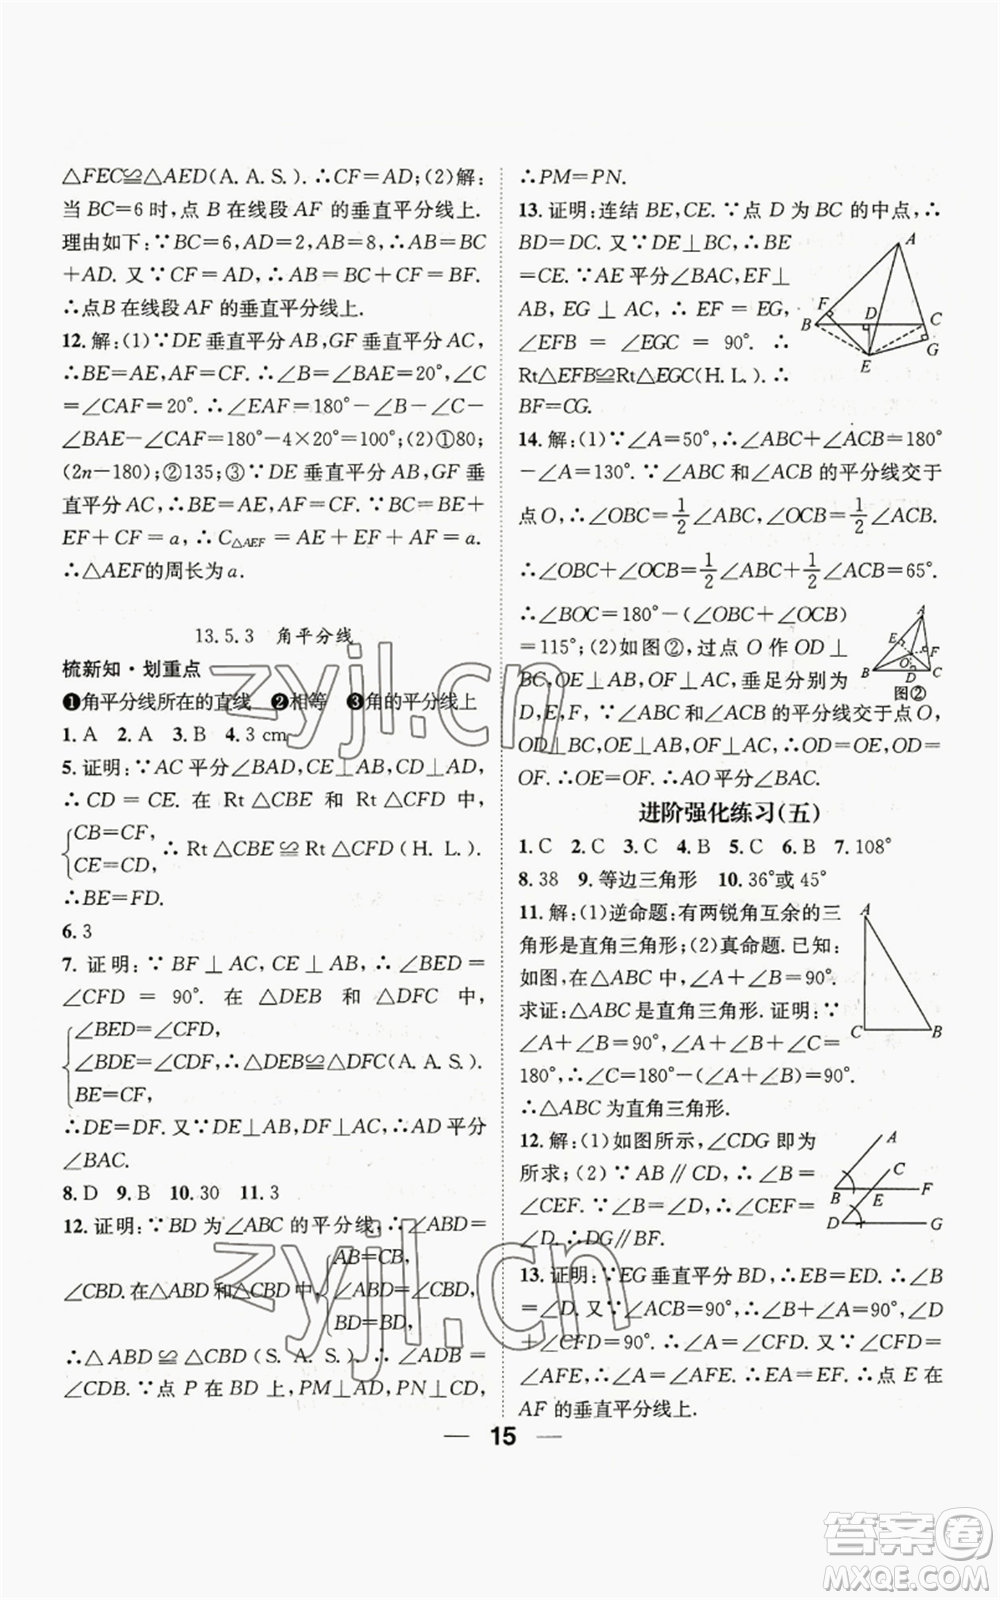 △FEC≌△AED(A. A. S. ). ∴CF=AD;(2)解:
当 BC=6 时,点 B 在线段 AF 的垂直平分线上.
理由如下:∵BC=6,AD=2,AB=8,∴AB=BC
+AD. 又∵CF=AD,∴AB=BC+CF=BF.
∴点B 在线段 AF 的垂直平分线上.
12. 解:(1)∵DE 垂直平分 AB,GF 垂直平分 AC,
∴BE=AE,AF=CF. ∴∠B=∠BAE=20°,∠C
=∠CAF=20°. ∴∠EAF=180°-∠B-∠C-
∠BAE-∠CAF=180°-4×20°=100°;(2)①80;
(2n-180);②135;③∵DE 垂直平分 AB,GF 垂
直平分 AC,∴BE=AE,AF=CF. ∵BC=BE+
EF+CF=a,∴C△AEF=AE+EF+AF=a.
∴△AEF的周长为a.
13.5.3 角平分线
梳新知·划重点
❶角平分线所在的直线 ❷相等 ❸角的平分线上
1. A 2. A 3. B 4. 3 cm
5. 证明:∵AC 平分∠BAD,CE⊥AB,CD⊥AD,
∴CD=CE. 在 Rt △CBE 和 Rt △CFD 中,
{CB=CF,
CE=CD, ∴ Rt △CBE ≌ Rt △CFD ( H. L. ).
∴BE=FD.
6. 3
7. 证明:∵BF⊥AC,CE⊥AB,∴∠BED=
∠CFD = 90°. 在 △DEB 和 △DFC 中,
{∠BED=∠CFD,
∠BDE=∠CDF,∴△DEB≌△DFC(A. A. S. ).
BE=CF,
∴DE=DF. 又∵DE⊥AB,DF⊥AC,∴AD 平分
∠BAC.
8. D 9. B 10. 30 11. 3
12. 证明:∵BD 为∠ABC 的平分线,∴∠ABD=
∠CBD. 在△ABD 和△CBD 中,{AB=CB,
∠ABD=∠CBD,
BD=BD,
∴△ABD≌△CBD (S. A. S. ). ∴∠ADB=
∠CDB. ∵点 P 在 BD 上,PM⊥AD,PN⊥CD,
∴PM=PN.
13. 证明:连结 BE,CE. ∵点 D 为 BC 的中点,∴
BD=DC. 又∵DE⊥BC,∴BE
=CE. ∵AE 平分∠BAC,EF⊥
AB, EG ⊥ AC, ∴ EF = EG,
∠EFB = ∠EGC = 90°. ∴
Rt△EFB≌Rt△EGC(H. L. ). ∴
BF=CG.
A
F
D
B
C
E
G
14. 解:(1)∵∠A=50°,∴∠ABC+∠ACB=180°
-∠A=130°. ∵∠ABC 和∠ACB 的平分线交于
点O,∴∠OBC=1/2∠ABC,∠OCB=1/2∠ACB.
∴∠OBC+∠OCB=1/2(∠ABC+∠ACB)=65°.
∴∠BOC=180°-(∠OBC+∠OCB)
=115°;(2)如图②,过点 O 作 OD⊥
BC,OE⊥AB,OF⊥AC,垂足分别为
D,E,F,∵∠ABC 和∠ACB 的平分线交于点 O,
OD⊥BC,OE⊥AB,OF⊥AC,∴OD=OE,OD=
OF. ∴OE=OF. ∴AO平分∠BAC.
A
E
F
O
B
D
C
图②
进阶强化练习(五)
1. C 2. C 3. C 4. B 5. C 6. B 7. 108°
8. 38 9. 等边三角形 10. 36°或 45°
11. 解:(1)逆命题:有两锐角互余的三
角形是直角三角形;(2)真命题. 已知:
如图,在△ABC 中,∠A+∠B=90°.
求证:△ABC 是直角三角形. 证明:∵
∠A+∠B=90°,∠A+∠B+∠C=
180°,∴∠C=180°-(∠A+∠B)=90°.
∴△ABC 为直角三角形.
A
C
B
12. 解:(1)如图所示,∠CDG 即为
所求;(2)∵AB∥CD,∴∠B=
∠CEF. ∵∠B=∠D,∴∠CEF=
∠D. ∴DG∥BF.
A
C
B
E
F
D
G
13. 证明:∵EG垂直平分 BD,∴EB=ED. ∴∠B
=∠D. 又∵∠ACB=90°,∴∠B+∠A=90°,∠D
+∠CFD=90°. ∴∠A=∠CFD. 又∵∠CFD=
∠AFE,∴∠A=∠AFE. ∴EA=EF. ∴点 E 在
AF 的垂直平分线上.
15
zyjl.cn
zyjl.cn
答案圈
MXQE.COM